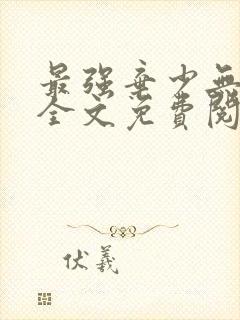 最强弃少無
全文免費閱
伏羲